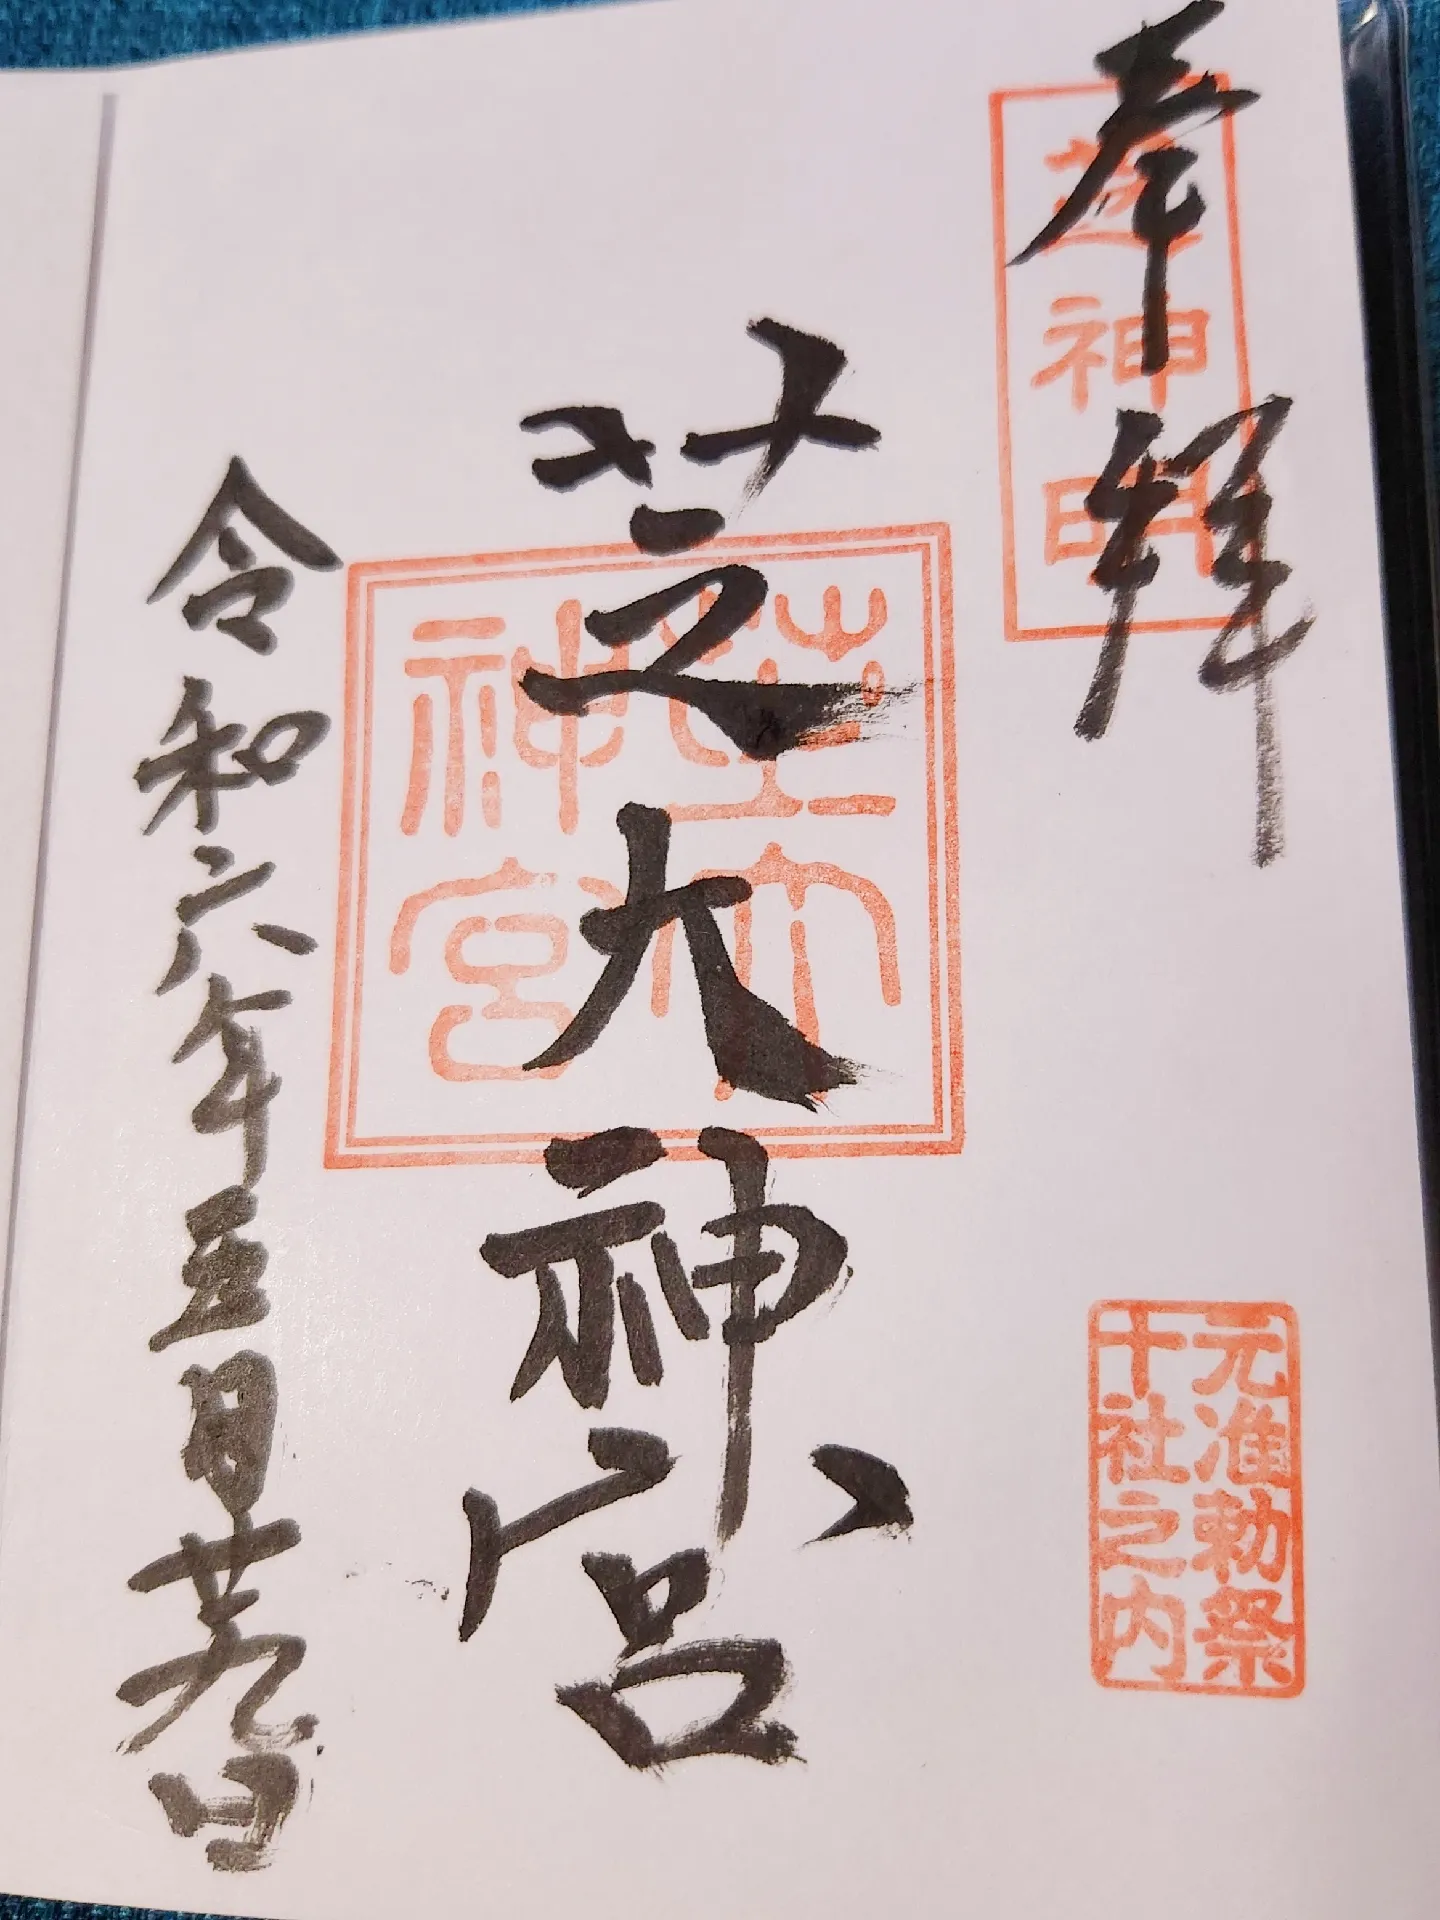 奉拜
遊神明
芝大神宮
芝大神宮
元准勅祭
十社之内
令和六年五月廿九日